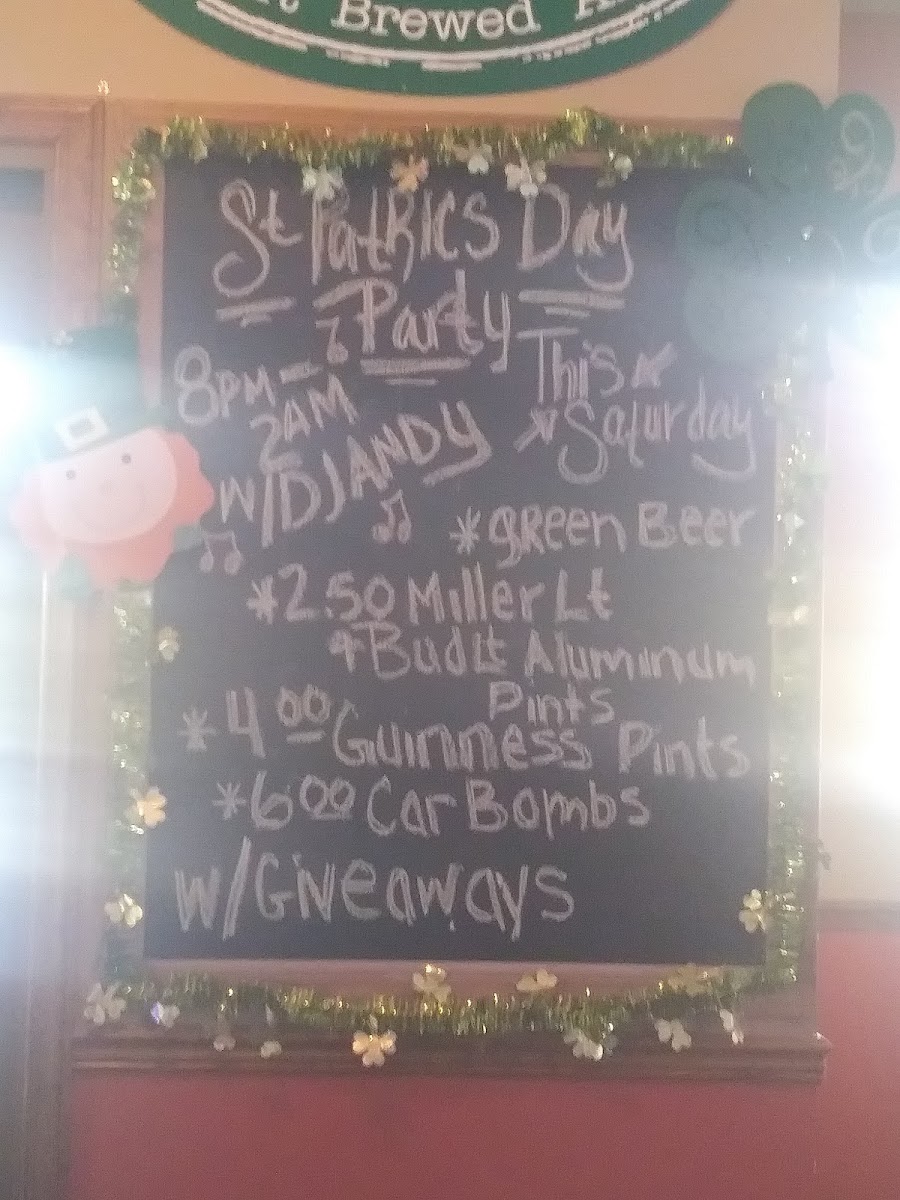 Brewed
St Patrics Day
Party
8PM - 2AM
This
Saturday
W/DJ ANDY
*green Beer
*2.50 Miller Lt
*Bud Lt Aluminum
Pints
*4.00 Guinness Pints
*6.00 Car Bombs
W/Giveaways